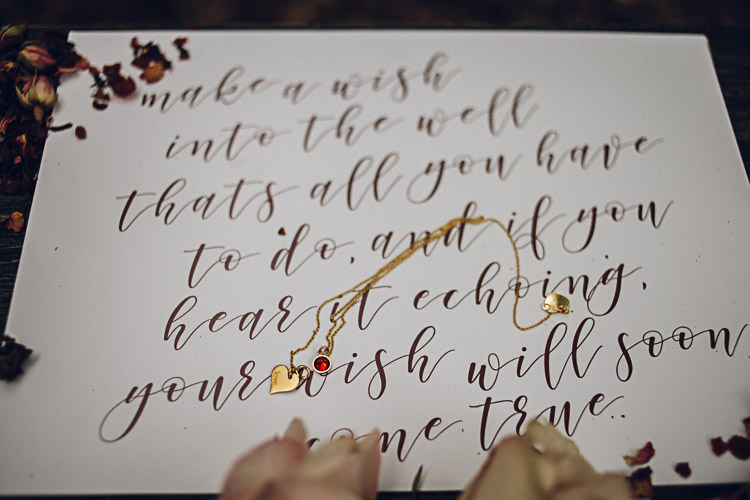 make a wish
into the well
thats all you have
to do, and if you
hear it echoing,
your wish will soon
come true..